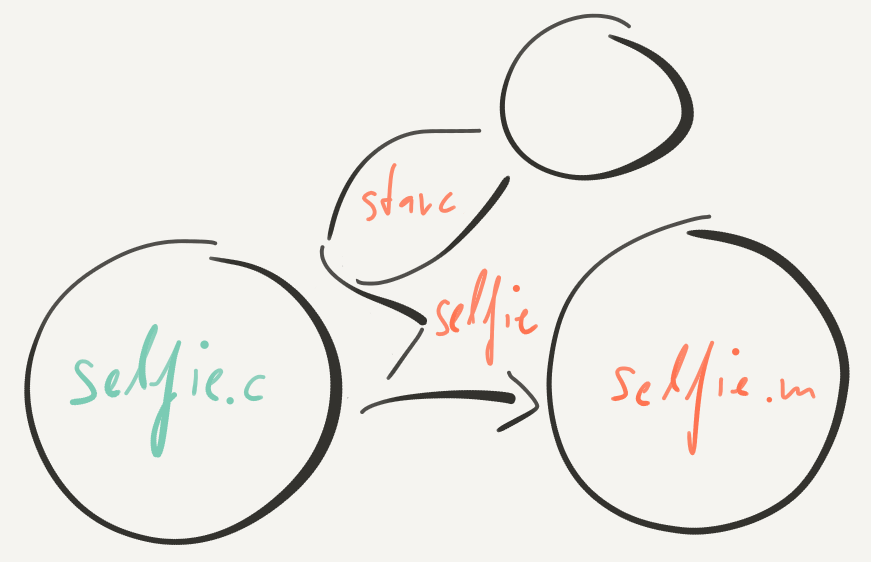 starc
selfie
selfie.c
selfie.m